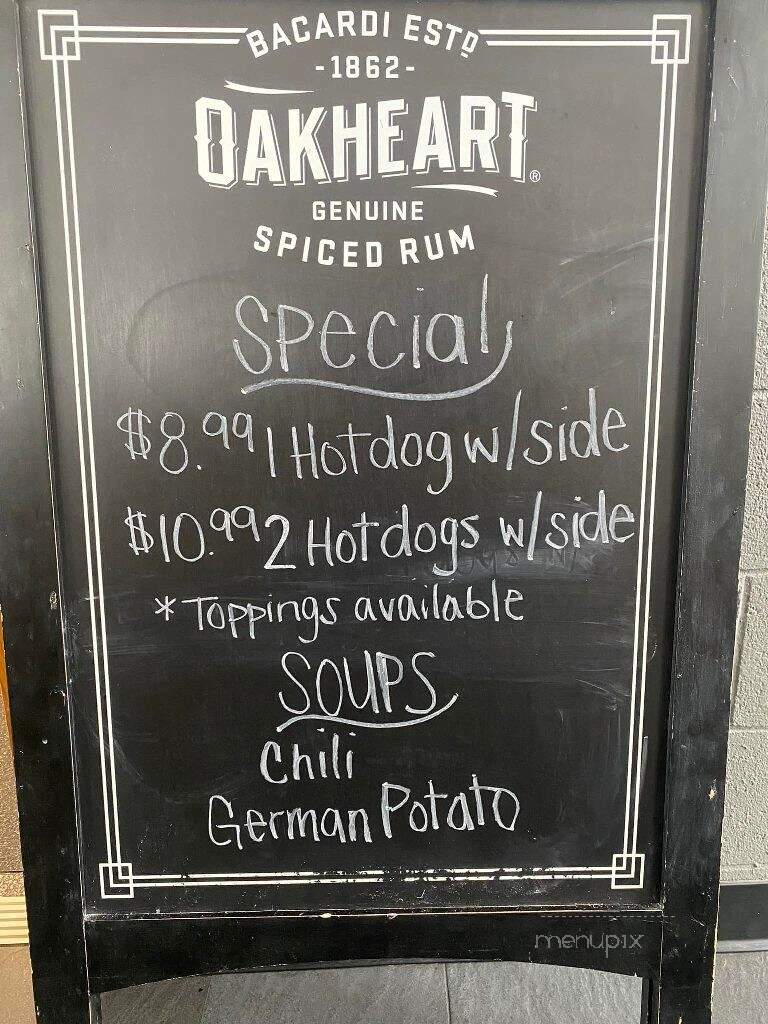 BACARDI ESTD
-1862-
OAKHEART®
GENUINE
SPICED RUM
Special
$8.99 1 Hotdog w/side
$10.99 2 Hotdogs w/side
*Toppings available
SOUPS
Chili
German Potato
menupix